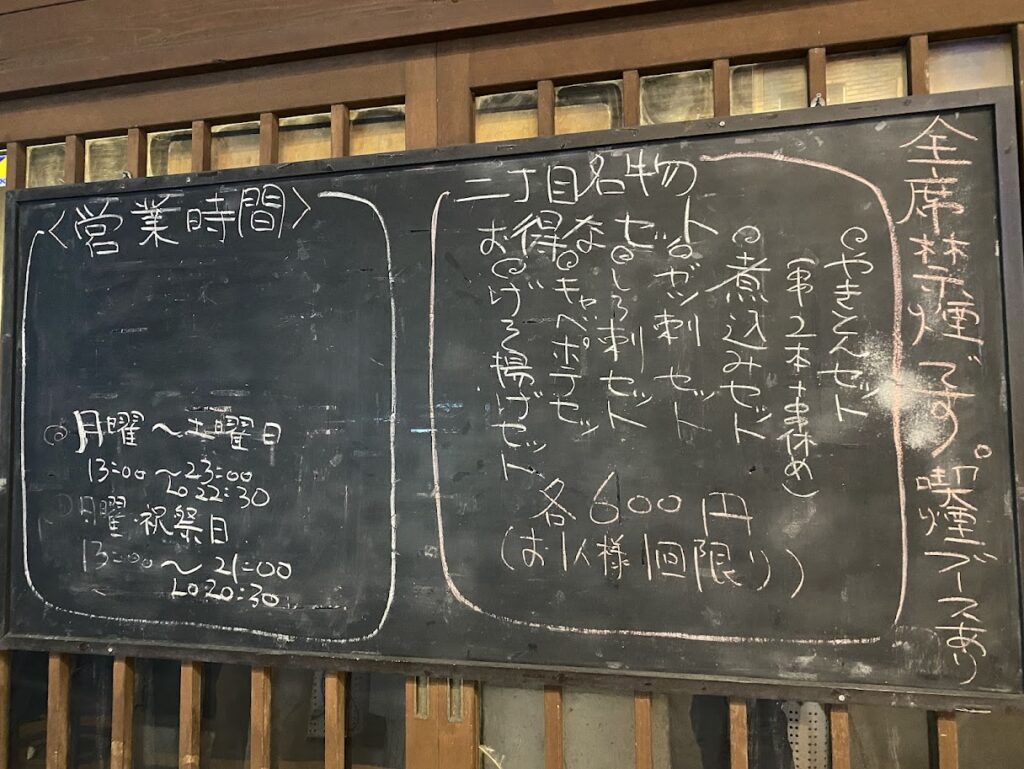 全席禁煙です。喫煙ブースあり
二丁目名物
お得なセット
◎やきとんセット
(串2本+串休め)
◎煮込みセット
◎ガツ刺セット
◎しろ刺セット
◎キャベポテセット
◎げそ揚げセット
各600円
(お1人様1回限り)
〈営業時間〉
◎月曜〜土曜日
13:00〜23:00
LO22:30
日曜・祝祭日
13:00〜21:00
LO20:30